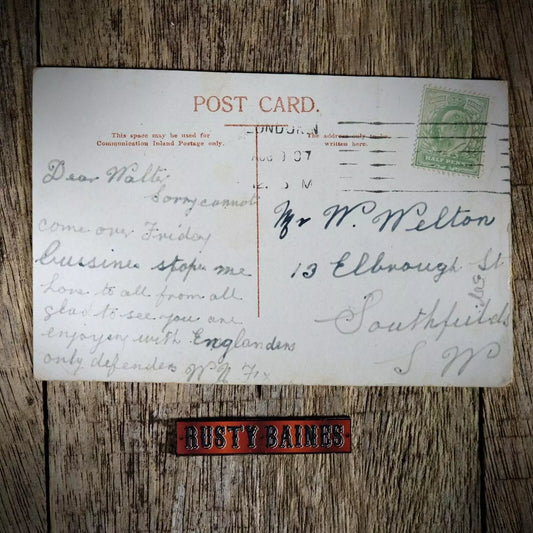 POST CARD.
This space may be used for
Communication Inland Postage only.
The address only to be
written here.
LONDON. N
AUG 07
12. 5 M
HALF PENNY
Dear Walte
Sorry cannot
come over Friday
bussines stops me
Love to all from all
glad to see you are
enjoyen with Englanders
only defender W.
Mr W. Welton
13 Elbrough St
Southfields
S W
RUSTY BAINES